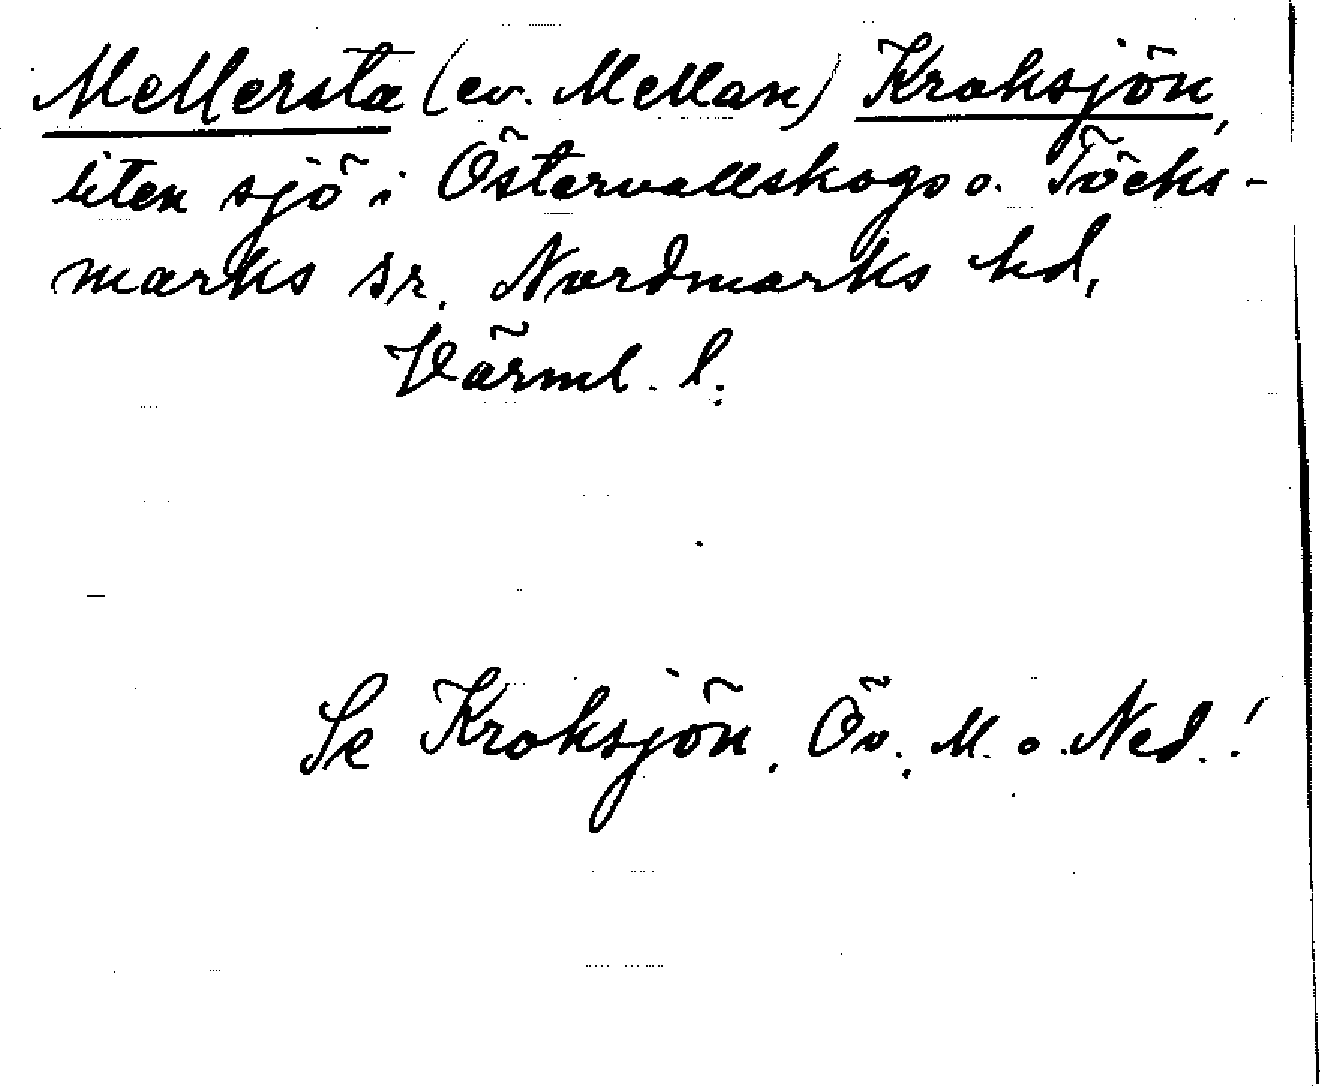 Mellersta (ev. Mellan) Kroksjön,
liten sjö i Östervallskogs o. Töcks-
marks sr, Nordmarks hd,
Värml. l.
Se Kroksjön, Öv., M. o. Ned.!